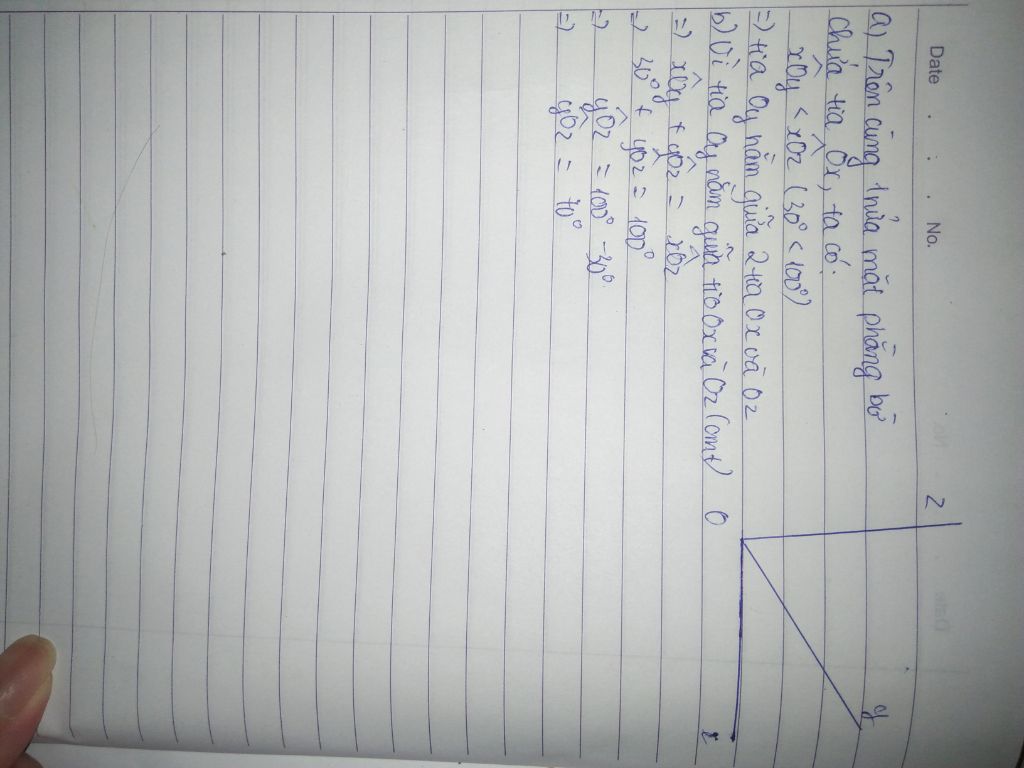 Date . : . No.
a) Trên cùng 1 nửa mặt phẳng bờ
chứa tia Ox, ta có:
xÔy < xÔz (30° < 100°)
=) tia Oy nằm giữa 2 tia Ox và Oz
b) Vì tia Oy nằm giữa tia Ox và Oz (cmt)
=) xÔy + yÔz = xÔz
=) 30° + yÔz = 100°
=) yÔz = 100° - 30°
=) yÔz = 70°
z
y
O
x